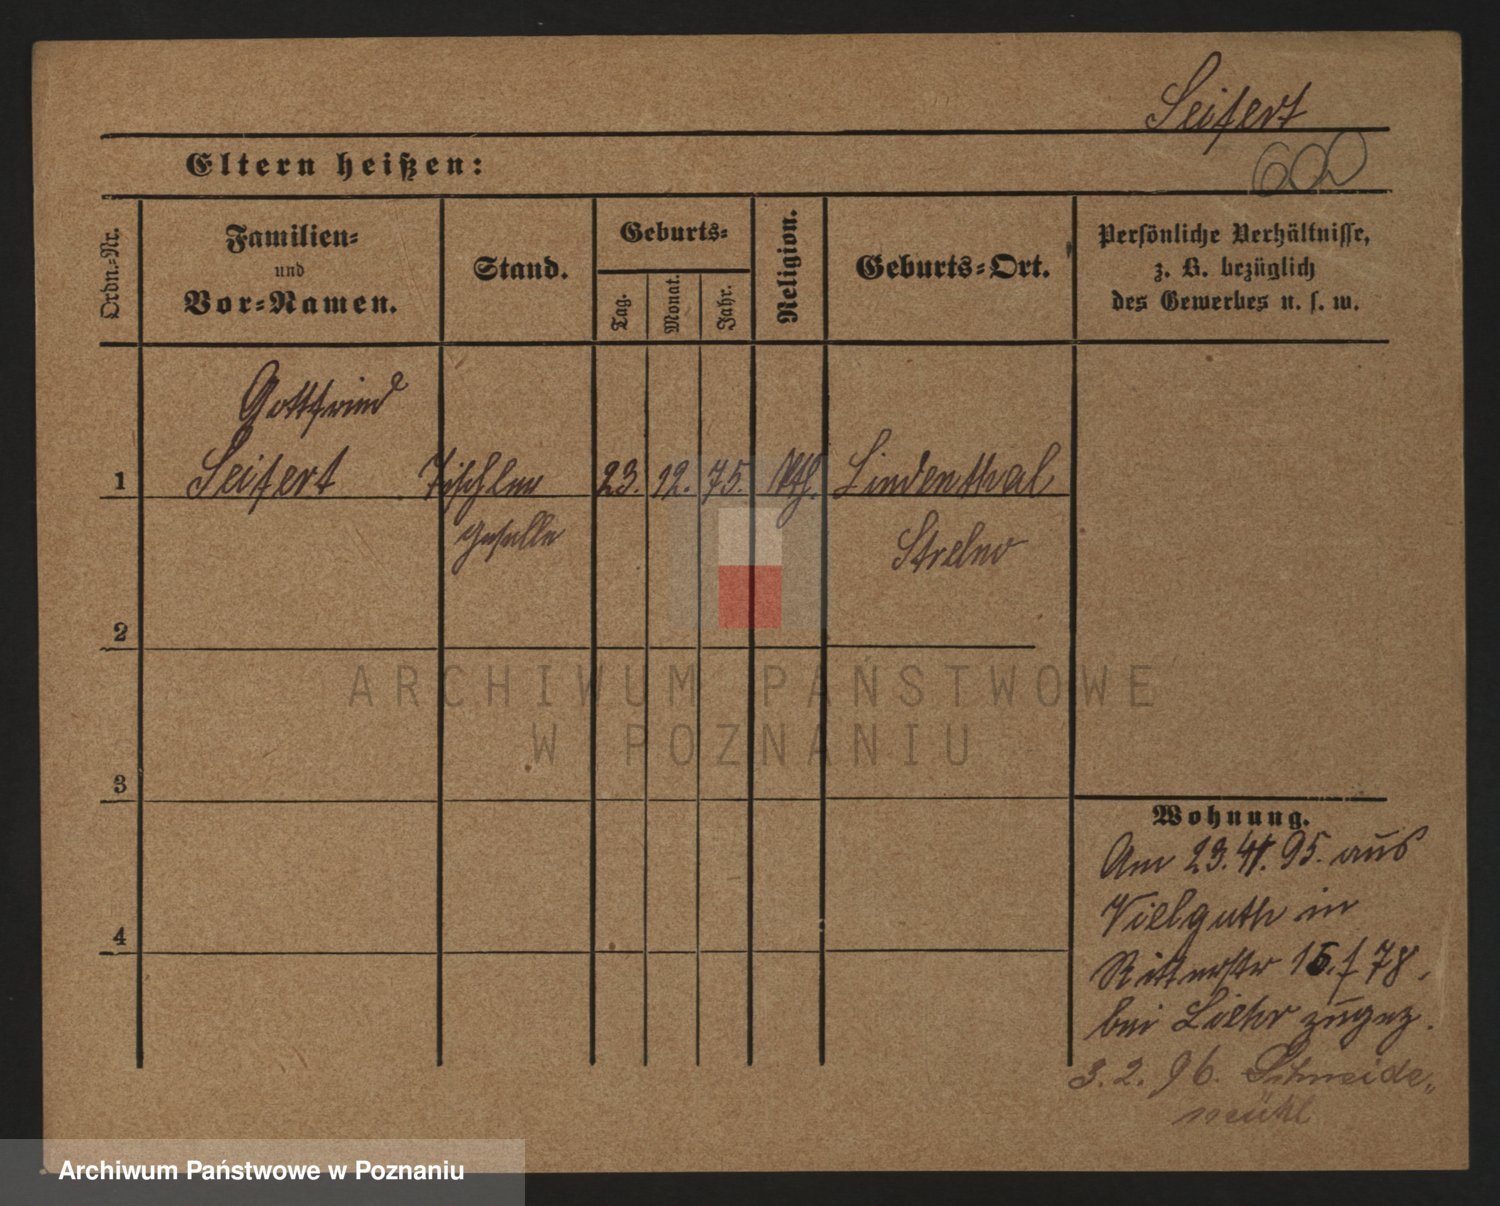 Seifert
600
Eltern heißen:
Ordn.-Nr.
Familien-
und
Vor-Namen.
Stand.
Geburts-
Tag.
Monat.
Jahr.
Religion.
Geburts-Ort.
Persönliche Verhältnisse,
z. B. bezüglich
des Gewerbes u. s. w.
Gottfried
1 Seifert Tischler 23. 12. 75. Kth. Lindenthal
geselle Strelno
2
3
4
Wohnung.
Am 23. 95. aus
Vielguth in
Ritterstr 15. f 78.
bei zugez.
3. 2. 96. Schneide-
mühl
ARCHIWUM PAŃSTWOWE
W POZNANIU
Archiwum Państwowe w Poznaniu